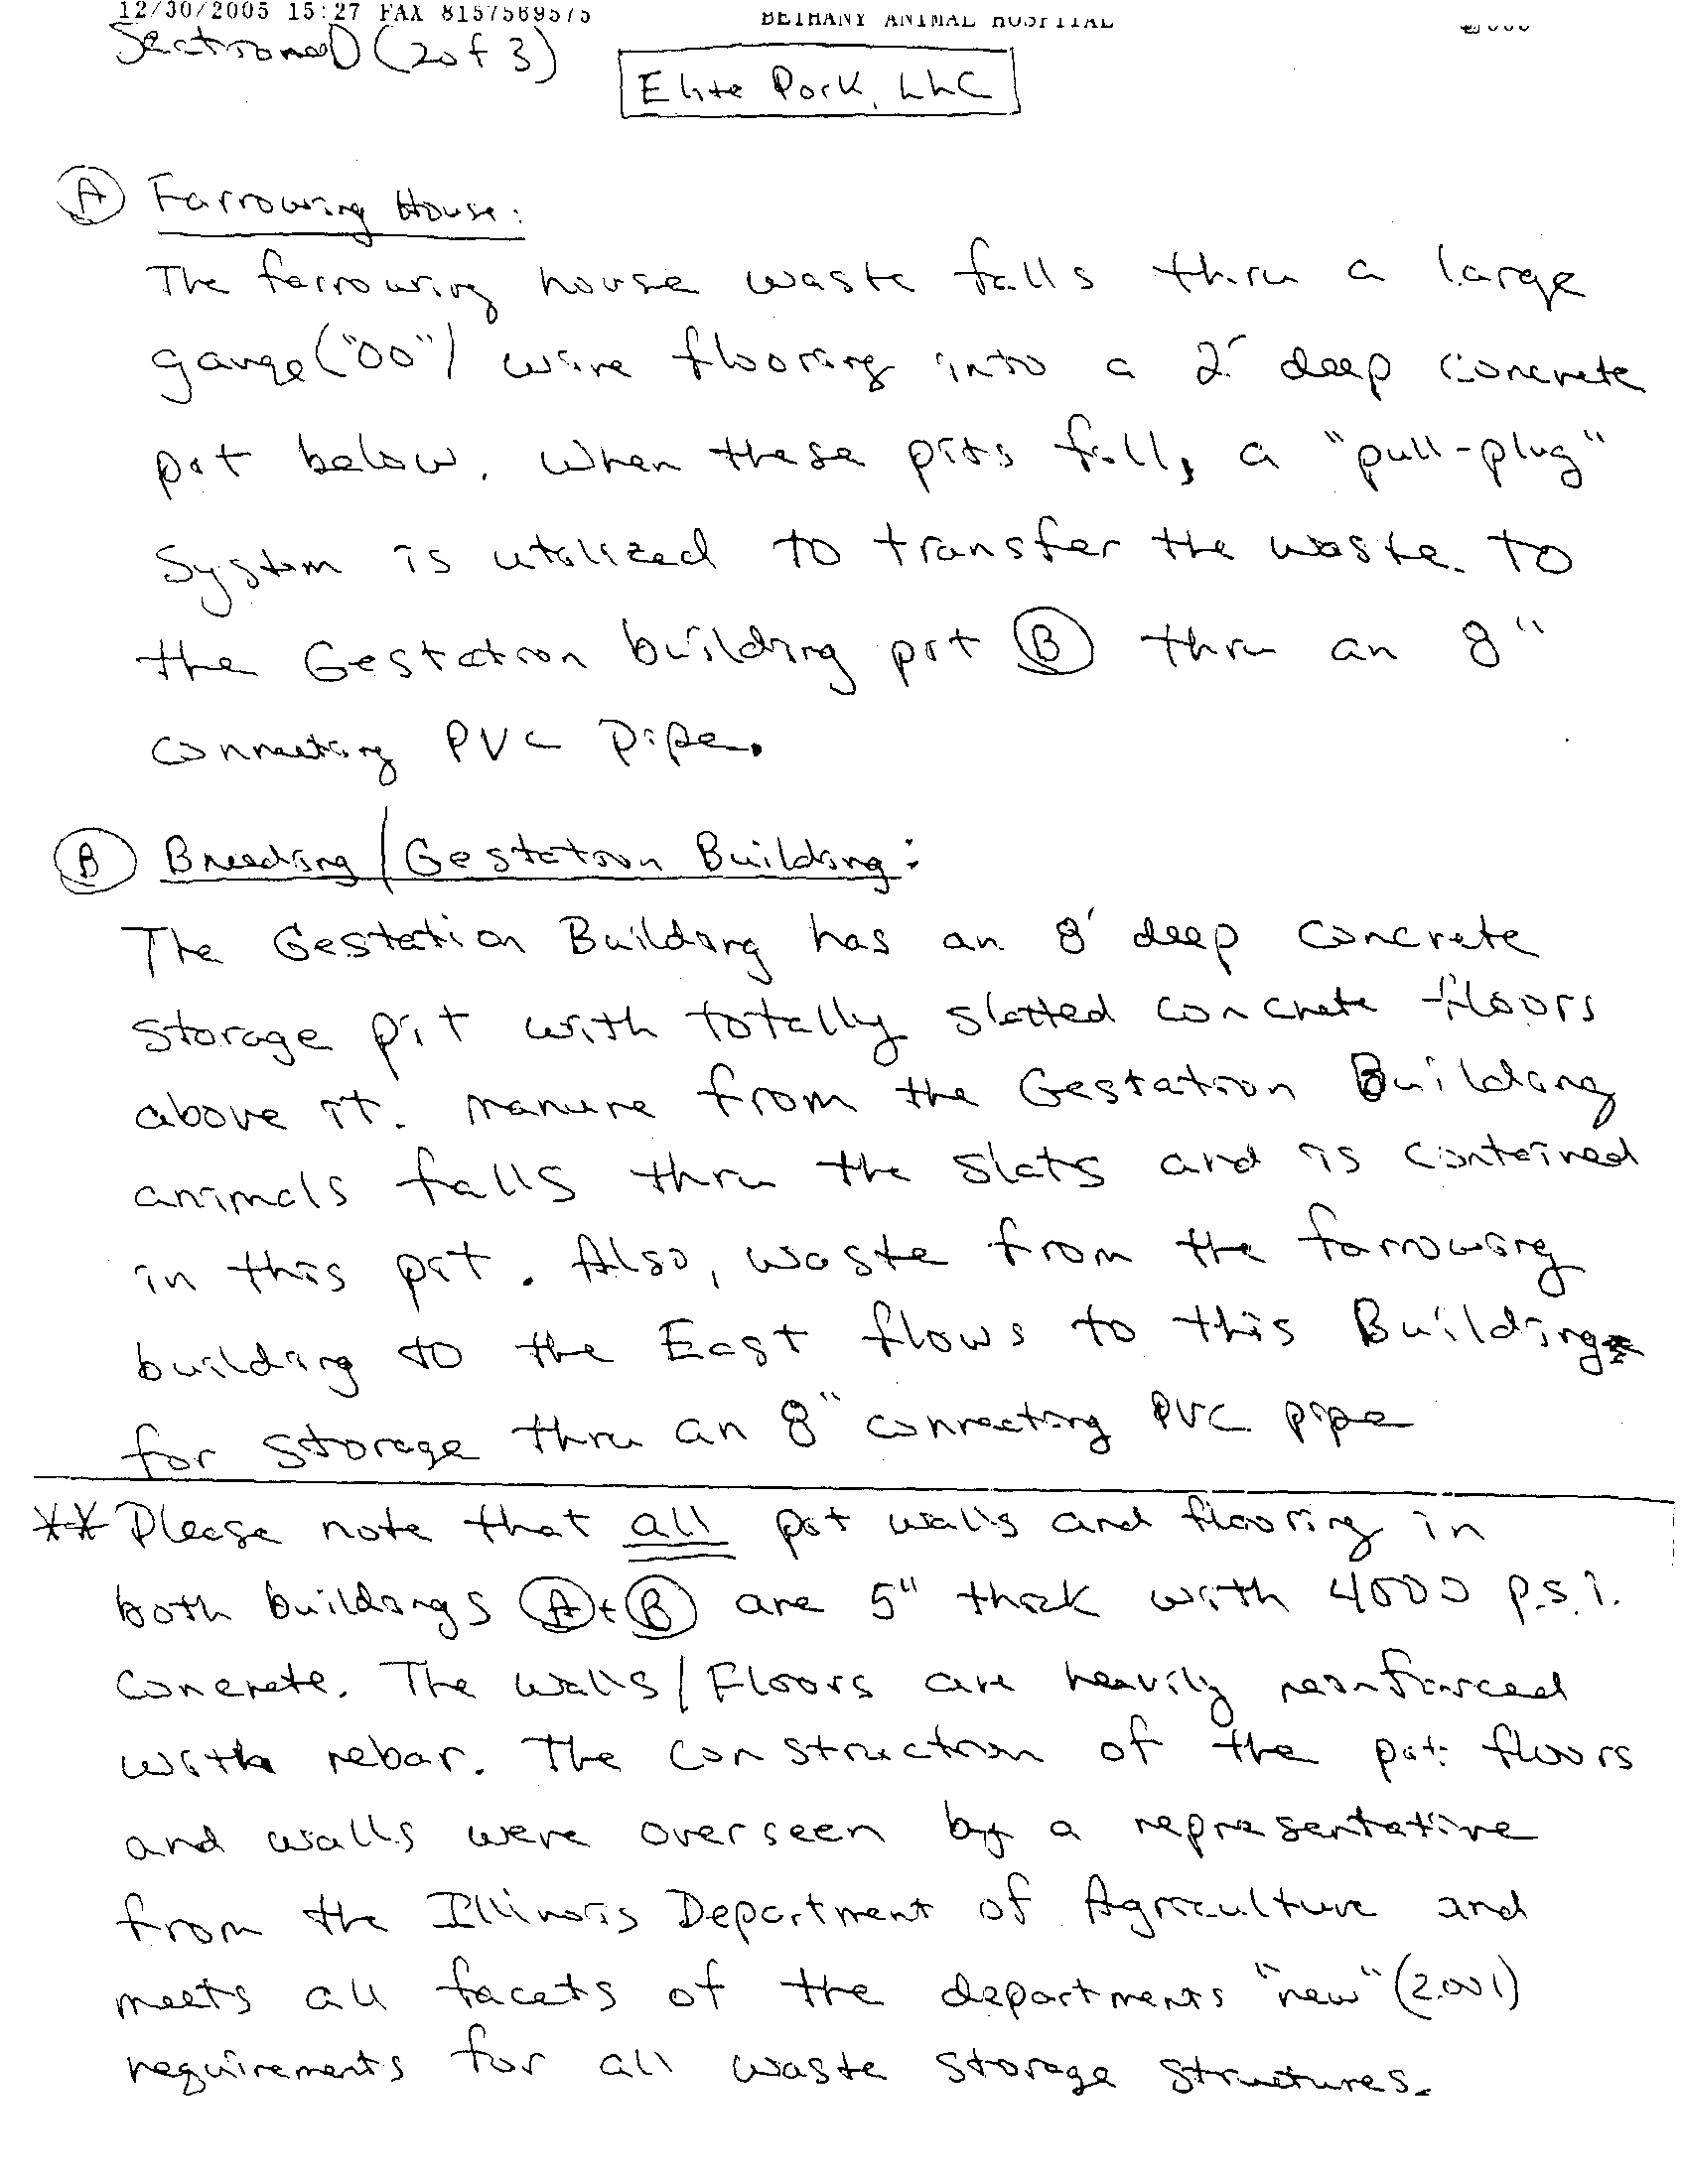 12/30/2005 15:27 FAX 8157569575 BETHANY ANIMAL HOSPITAL
Section D (2 of 3)
Elite Pork, LLC
(A) Farrowing House:
The farrowing house waste falls thru a large
gauge ("00") wire flooring into a 2' deep concrete
pit below. When these pits fill, a "pull-plug"
System is utilized to transfer the waste to
the Gestation building pit (B) thru an 8"
connecting PVC Pipe.
(B) Breeding/Gestation Building:
The Gestation Building has an 8' deep concrete
storage pit with totally slatted concrete floors
above it. Manure from the Gestation Building
animals falls thru the slats and is contained
in this pit. Also, waste from the farrowing
building to the East flows to this Building
for storage thru an 8" connecting PVC pipe
** Please note that all pit walls and flooring in
both buildings (A) + (B) are 5" thick with 4000 p.s.i.
Concrete. The walls/Floors are heavily reinforced
with rebar. The construction of the pit floors
and walls were overseen by a representative
from the Illinois Department of Agriculture and
meets all facets of the departments "new" (2001)
requirements for all waste storage structures.